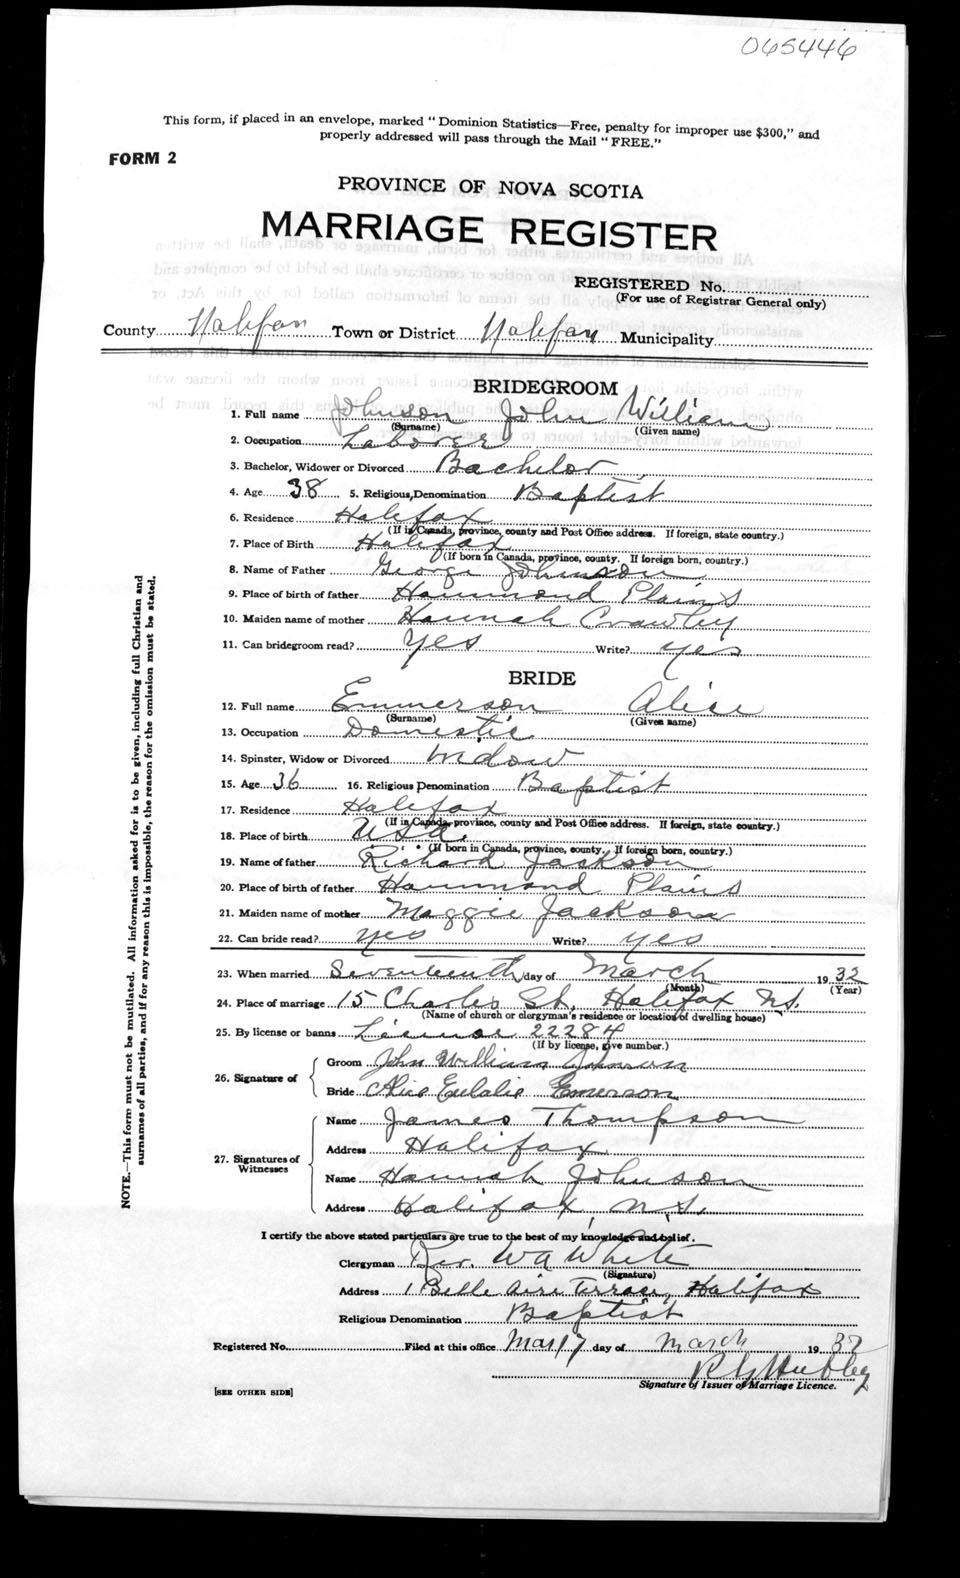 065446
This form, if placed in an envelope, marked "Dominion Statistics—Free, penalty for improper use $300," and
properly addressed will pass through the Mail "FREE."
FORM 2
PROVINCE OF NOVA SCOTIA
MARRIAGE REGISTER
REGISTERED No.
(For use of Registrar General only)
County Halifax Town or District Halifax Municipality
BRIDEGROOM
1. Full name Johnson John William
(Surname) (Given name)
2. Occupation Laborer
3. Bachelor, Widower or Divorced Bachelor
4. Age 38 5. Religious Denomination Baptist
6. Residence Halifax
(If in Canada, province, county and Post Office address. If foreign, state country.)
7. Place of Birth Halifax
(If born in Canada, province, county. If foreign born, country.)
8. Name of Father George Johnson
9. Place of birth of father Hammond Plains
10. Maiden name of mother Hannah Crawley
11. Can bridegroom read? Yes Write? Yes
BRIDE
12. Full name Emmerson Alice
(Surname) (Given name)
13. Occupation Domestic
14. Spinster, Widow or Divorced Widow
15. Age 36 16. Religious Denomination Baptist
17. Residence Halifax
(If in Canada, province, county and Post Office address. If foreign, state country.)
18. Place of birth USA.
(If born in Canada, province, county. If foreign born, country.)
19. Name of father Richard Jackson
20. Place of birth of father Hammond Plains
21. Maiden name of mother Maggie Jackson
22. Can bride read? Yes Write? Yes
23. When married Seventeenth day of March 1932
(Month) (Year)
24. Place of marriage 15 Charles St. Halifax N.S.
(Name of church or clergyman's residence or location of dwelling house)
25. By license or banns License 22284
(If by license, give number.)
26. Signature of
Groom John William Johnson
Bride Alice Eulalie Emerson
27. Signatures of Witnesses
Name James Thompson
Address Halifax
Name Hannah Johnson
Address Halifax, N.S.
I certify the above stated particulars are true to the best of my knowledge and belief.
Clergyman Rev. W A White
(Signature)
Address 1 Belle Aire Terrace, Halifax
Religious Denomination Baptist
Registered No. Filed at this office Mar 17 day of March 1932
Signature of Issuer of Marriage Licence.
[SEE OTHER SIDE]
NOTE.—This form must not be mutilated. All information asked for is to be given, including full Christian and
surnames of all parties, and if for any reason this is impossible, the reason for the omission must be stated.